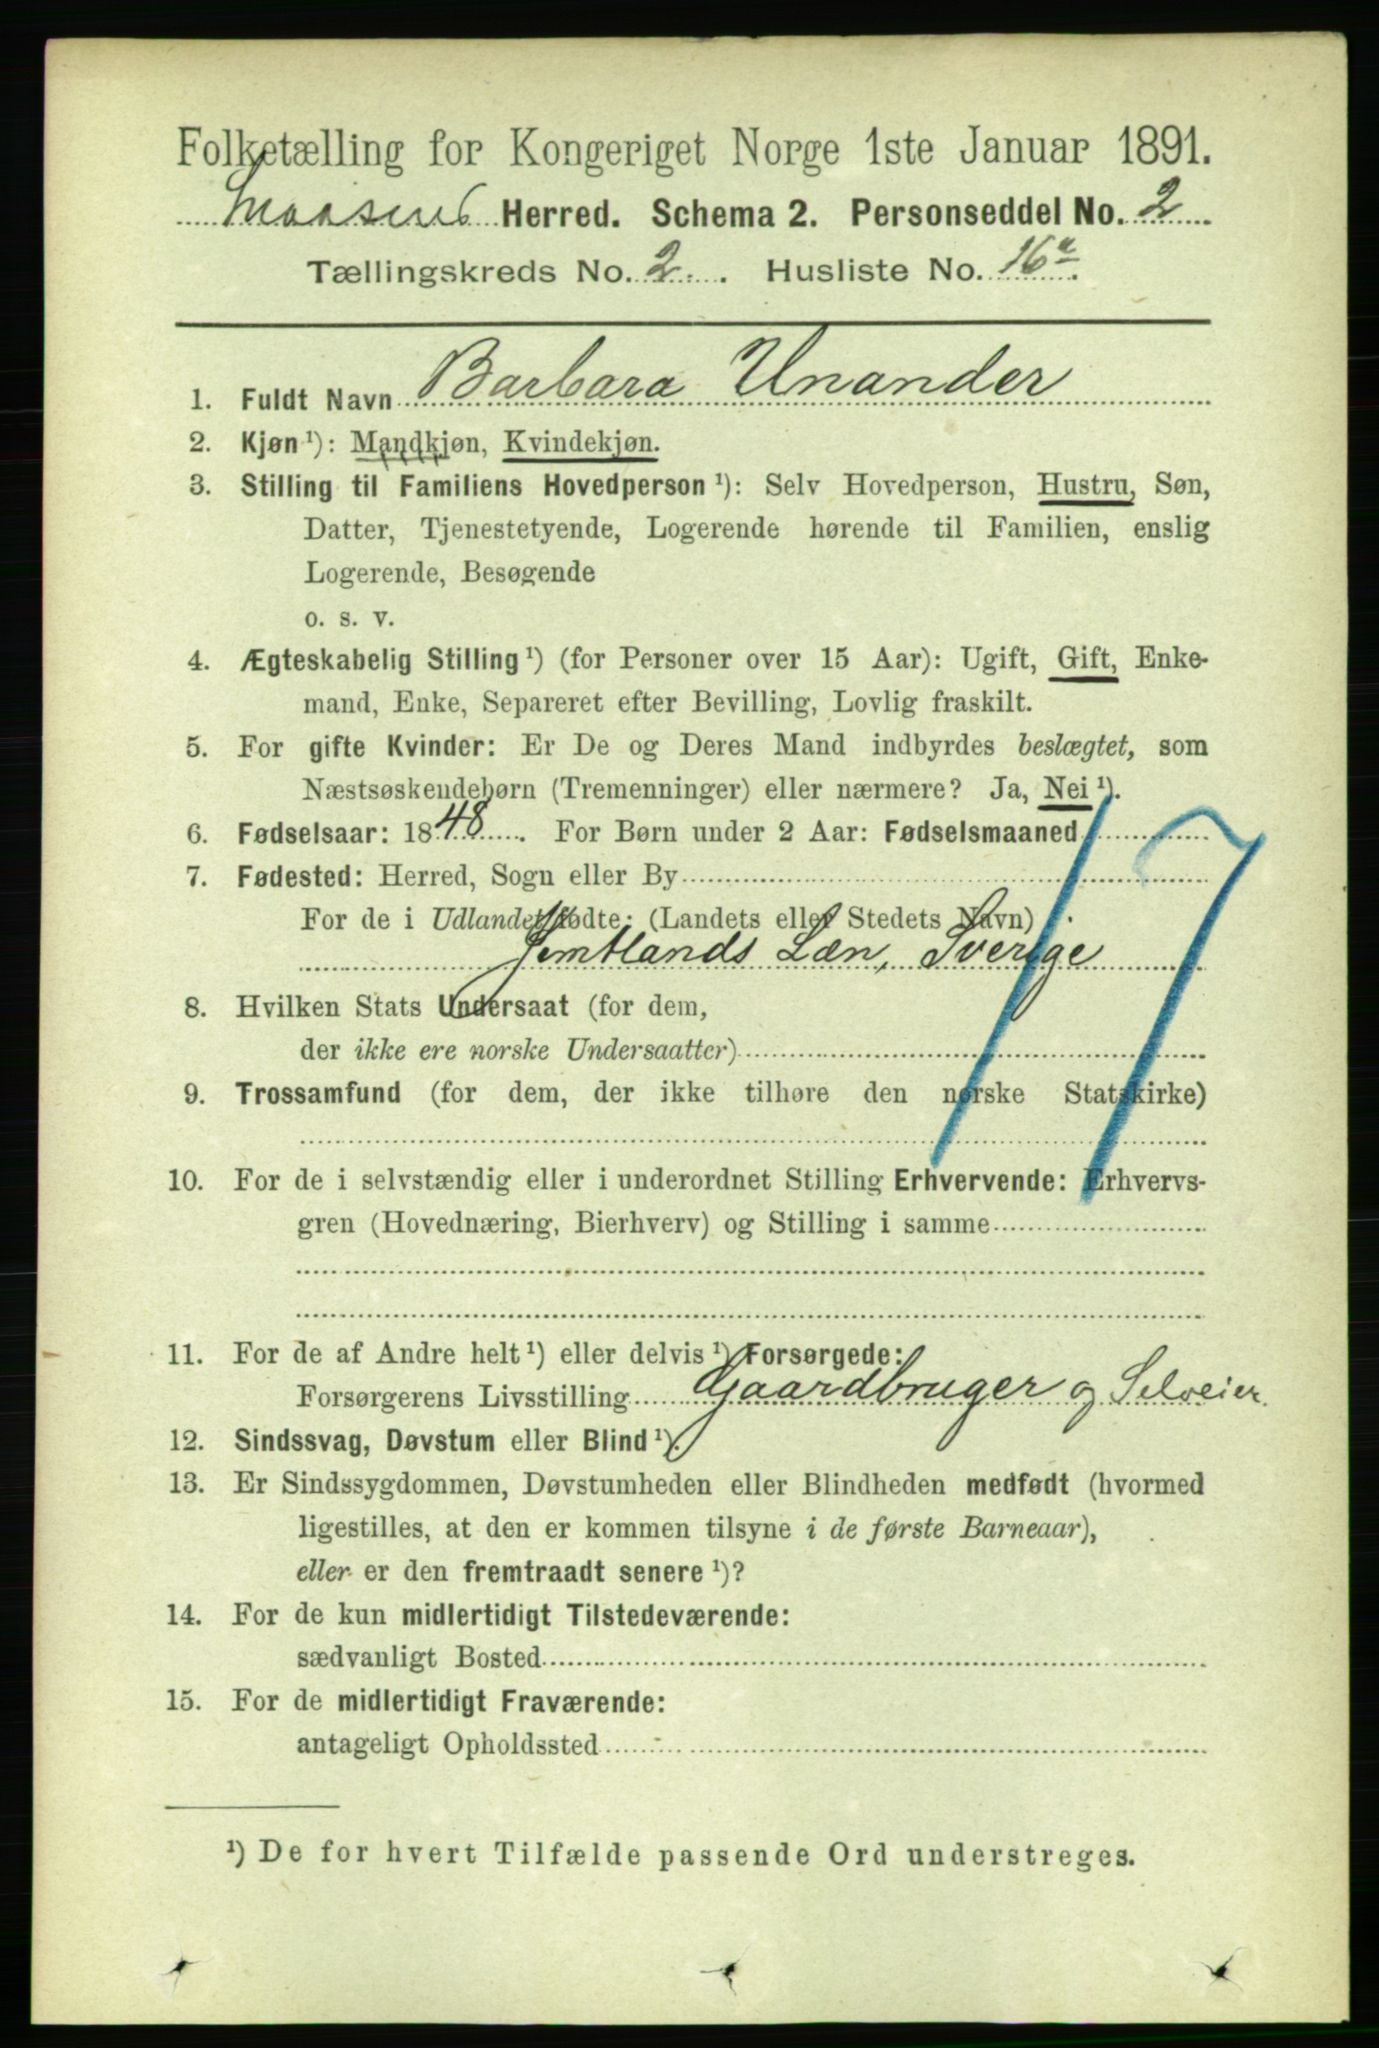 Folketælling for Kongeriget Norge 1ste Januar 1891.
Snaasens Herred. Schema 2. Personseddel No. 2
Tællingskreds No. 2. Husliste No. 16a.
1. Fuldt Navn Barbara Unander
2. Kjøn¹): Mandkjøn, Kvindekjøn.
3. Stilling til Familiens Hovedperson¹): Selv Hovedperson, Hustru, Søn,
Datter, Tjenestetyende, Logerende hørende til Familien, enslig
Logerende, Besøgende
o. s. v.
4. Ægteskabelig Stilling¹) (for Personer over 15 Aar): Ugift, Gift, Enke-
mand, Enke, Separeret efter Bevilling, Lovlig fraskilt.
5. For gifte Kvinder: Er De og Deres Mand indbyrdes beslægtet, som
Næstsøskendebørn (Tremenninger) eller nærmere? Ja, Nei¹).
6. Fødselsaar: 1848. For Børn under 2 Aar: Fødselsmaaned
7. Fødested: Herred, Sogn eller By
For de i Udlandet fødte: (Landets eller Stedets Navn)
Jemtlands Læn, Sverige
17
8. Hvilken Stats Undersaat (for dem,
der ikke ere norske Undersaatter)
9. Trossamfund (for dem, der ikke tilhøre den norske Statskirke)
10. For de i selvstændig eller i underordnet Stilling Erhvervende: Erhvervs-
gren (Hovednæring, Bierhverv) og Stilling i samme
11. For de af Andre helt¹) eller delvis¹) Forsørgede:
Forsørgerens Livsstilling Gaardbruger og Selveier.
12. Sindssvag, Døvstum eller Blind¹).
13. Er Sindssygdommen, Døvstumheden eller Blindheden medfødt (hvormed
ligestilles, at den er kommen tilsyne i de første Barneaar),
eller er den fremtraadt senere¹)?
14. For de kun midlertidigt Tilstedeværende:
sædvanligt Bosted
15. For de midlertidigt Fraværende:
antageligt Opholdssted
¹) De for hvert Tilfælde passende Ord understreges.